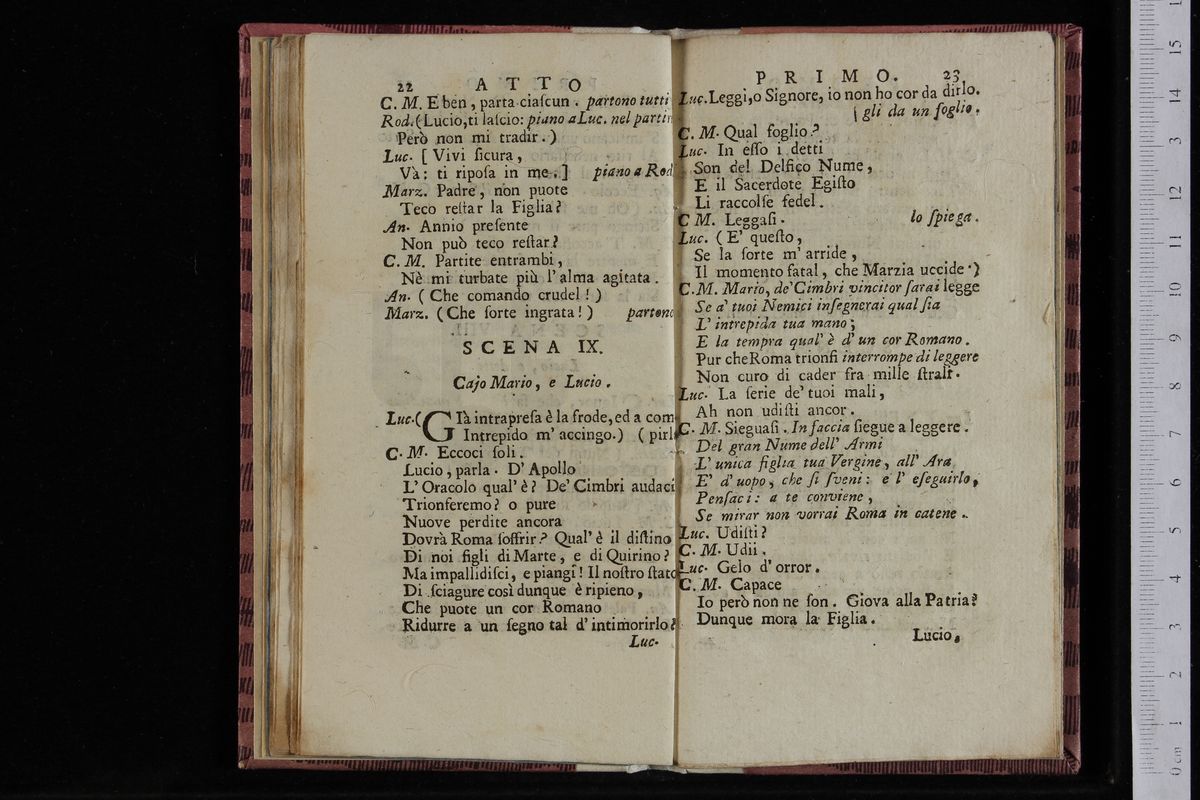 22 ATTO
C. M. E ben, parta ciaſcun. partono tutti
Rod. (Lucio, ti laſcio: piano a Luc. nel partir
Però non mi tradir.)
Luc. [Vivi ſicura,
Và: ti ripoſa in me.] piano a Rod
Marz. Padre, non puote
Teco reſtar la Figlia?
An. Annio preſente
Non può teco reſtar?
C. M. Partite entrambi,
Nè mi turbate più l'alma agitata.
An. (Che comando crudel!)
Marz. (Che ſorte ingrata!) partono
SCENA IX.
Cajo Mario, e Lucio.
Luc. (GIà intrapreſa è la frode, ed a com
Intrepido m'accingo.)
C. M. Eccoci ſoli.
Lucio, parla. D'Apollo
L'Oracolo qual'è? De' Cimbri audaci
Trionferemo? o pure
Nuove perdite ancora
Dovrà Roma ſoffrir? Qual'è il diſtino
Di noi figli di Marte, e di Quirino?
Ma impallidiſci, e piangi! Il noſtro ſtato
Di ſciagure così dunque è ripieno,
Che puote un cor Romano
Ridurre a un ſegno tal d'intimorirlo?
Luc.
PRIMO. 23
Luc. Leggi, o Signore, io non ho cor da dirlo.
( gli da un foglio.
C. M. Qual foglio?
Luc. In eſſo i detti
Son del Delfico Nume,
E il Sacerdote Egiſto
Li raccolſe fedel.
C M. Leggaſi. lo ſpiega.
Luc. (E' queſto,
Se la ſorte m'arride,
Il momento fatal, che Marzia uccide.)
C. M. Mario, de' Cimbri vincitor ſarai legge
Se a' tuoi Nemici inſegnerai qual ſia
L'intrepida tua mano;
E la tempra qual'è d'un cor Romano.
Pur che Roma trionfi interrompe di leggere
Non curo di cader fra mille ſtrali.
Luc. La ſerie de' tuoi mali,
Ah non udiſti ancor.
C. M. Sieguaſi. In faccia ſiegue a leggere.
Del gran Nume dell' Armi
L'unica figlia tua Vergine, all' Ara
E' d'uopo, che ſi ſveni: e l'eſeguirlo,
Penſaci: a te conviene,
Se mirar non vorrai Roma in catene.
Luc. Udiſti?
C. M. Udii.
Luc. Gelo d'orror.
C. M. Capace
Io però non ne ſon. Giova alla Patria?
Dunque mora la Figlia.
Lucio,